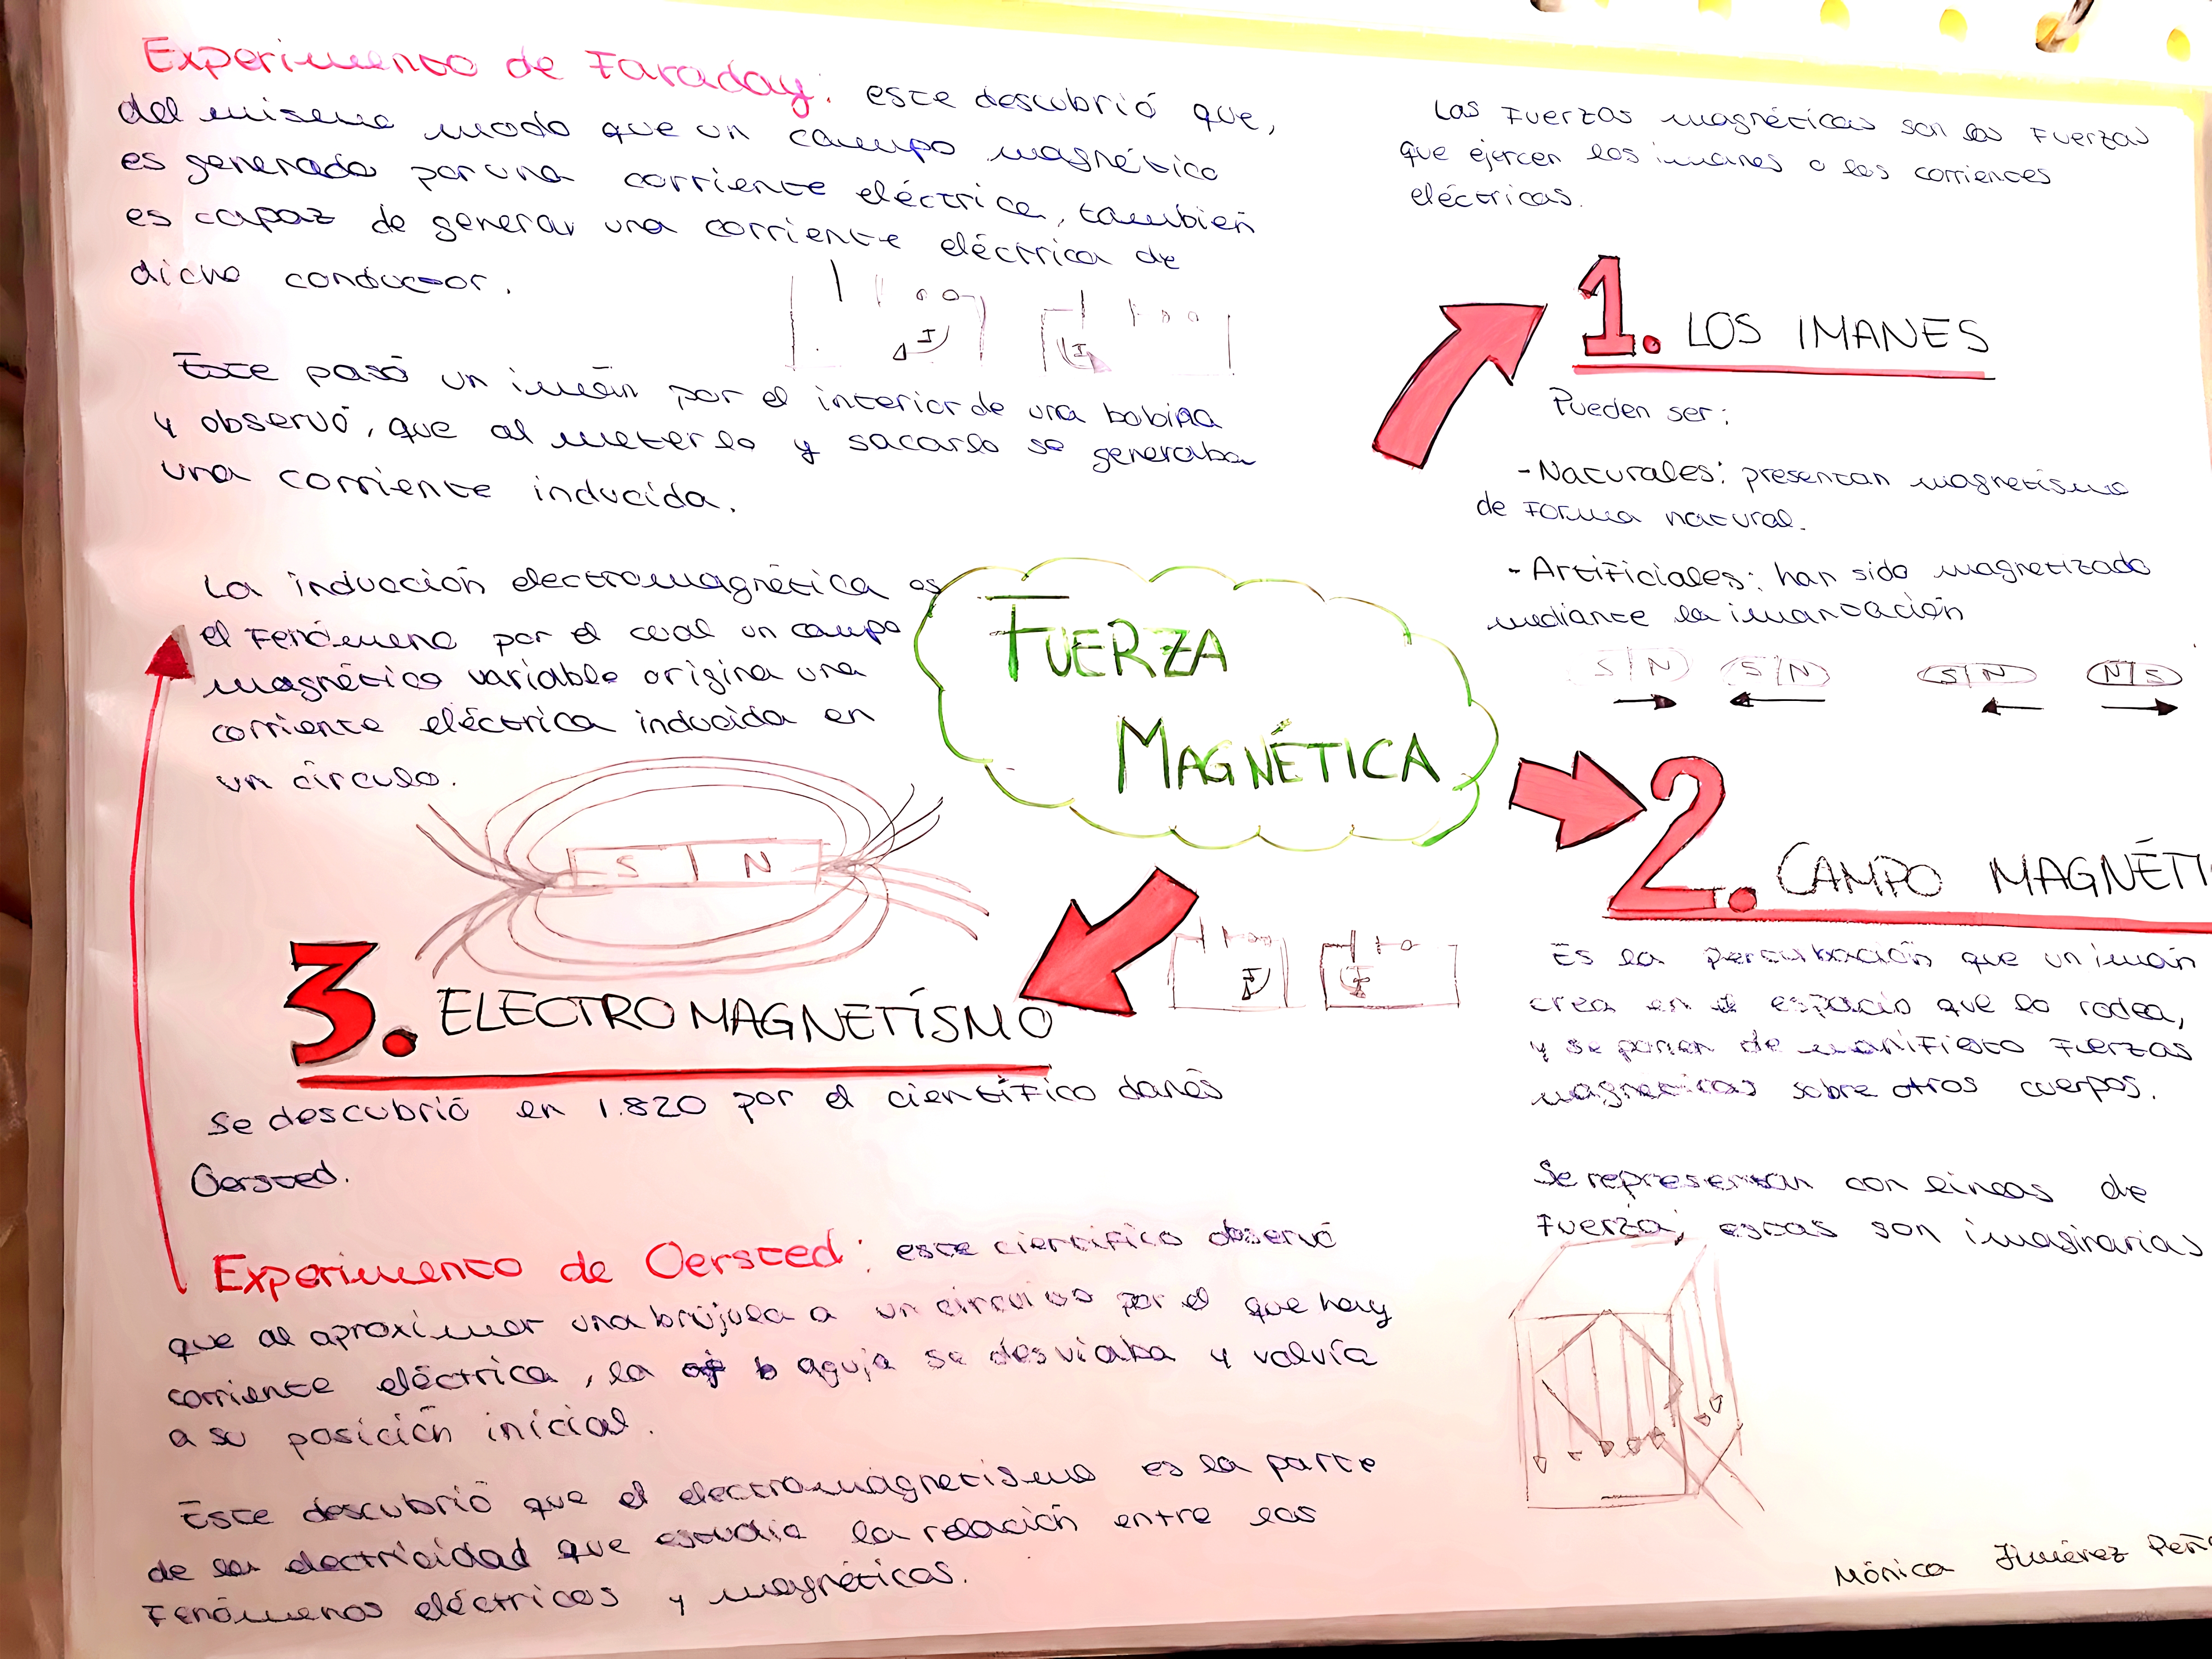 Experimento de Faraday: este descubrió que,
del mismo modo que un campo magnético
es generado por una corriente eléctrica, también
es capaz de generar una corriente eléctrica de
dicho conductor.
I
I
Este pasó un imán por el interior de una bobina
y observó, que al meterlo y sacarlo se generaba
una corriente inducida.
La inducción electromagnética es
el fenómeno por el cual un campo
magnético variable origina una
corriente eléctrica inducida en
un círculo.
S N
FUERZA
MAGNÉTICA
Las fuerzas magnéticas son las fuerzas
que ejercen los imanes o las corrientes
eléctricas.
1. LOS IMANES
Pueden ser:
- Naturales: presentan magnetismo
de forma natural.
- Artificiales: han sido magnetizado
mediante la imantación
S/N S/N S/N N/S
2. CAMPO MAGNÉTI
Es la perturbación que un imán
crea en el espacio que lo rodea,
y se ponen de manifiesto fuerzas
magnéticas sobre otros cuerpos.
Se representan con líneas de
fuerza, estas son imaginarias
3. ELECTROMAGNETÍSMO
I
I
Se descubrió en 1.820 por el científico danés
Oersted.
Experimento de Oersted: este científico observó
que al aproximar una brújula a un circuito por el que hay
corriente eléctrica, la aguja se desviaba y volvía
a su posición inicial.
Este descubrió que el electromagnetismo es la parte
de la electricidad que estudia la relación entre los
fenómenos eléctricos y magnéticos.
Mónica Jiménez Peñ